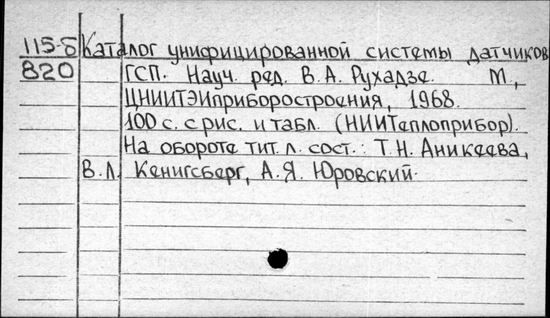 115-б Каталог унифицированной системы датчиков
820 ГСП. Науч. ред. В.А. Рухадзе. М.,
ЦНИИТЭИприборостроения, 1968.
100 с. с рис. и табл. (НИИТеплоприбор).
На обороте тит. л. сост.: Т.Н. Аникеева,
В.Л. Кенигсберг, А.Я. Юровский.